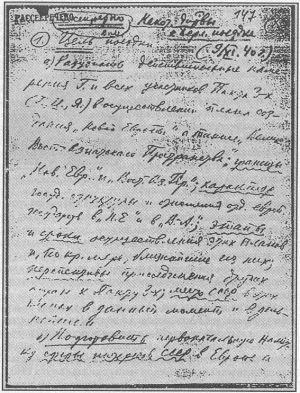 РАССЕКРЕЧЕНО
Секретно
147
Некот. дир-вы
к Берл. поездке
(9/XI. 40 г.)
1) Цель поездки
а) Разузнать действительные наме-
рения Г. и всех участников Пакта 3-х
(Г, И, Я) в осуществлении плана соз-
дания "Новой Европы", а также "Велик.
Вост.-Азиатского Пространства"; границы
"Нов. Евр." и "Вост. Аз. Пр."; характер
госуд. структуры и отношения отд. европ.
государств в "Н.Е" и в "В-А"; этапы
и сроки осуществления этих планов
и, по кр. мере, ближайшие из них;
перспективы присоединения других
стран к Пакту 3-х; место СССР в этих
планах в данный момент и в даль-
нейшем.
б) Подготовить первоначальную намет-
ку сферы интересов СССР в Европе и